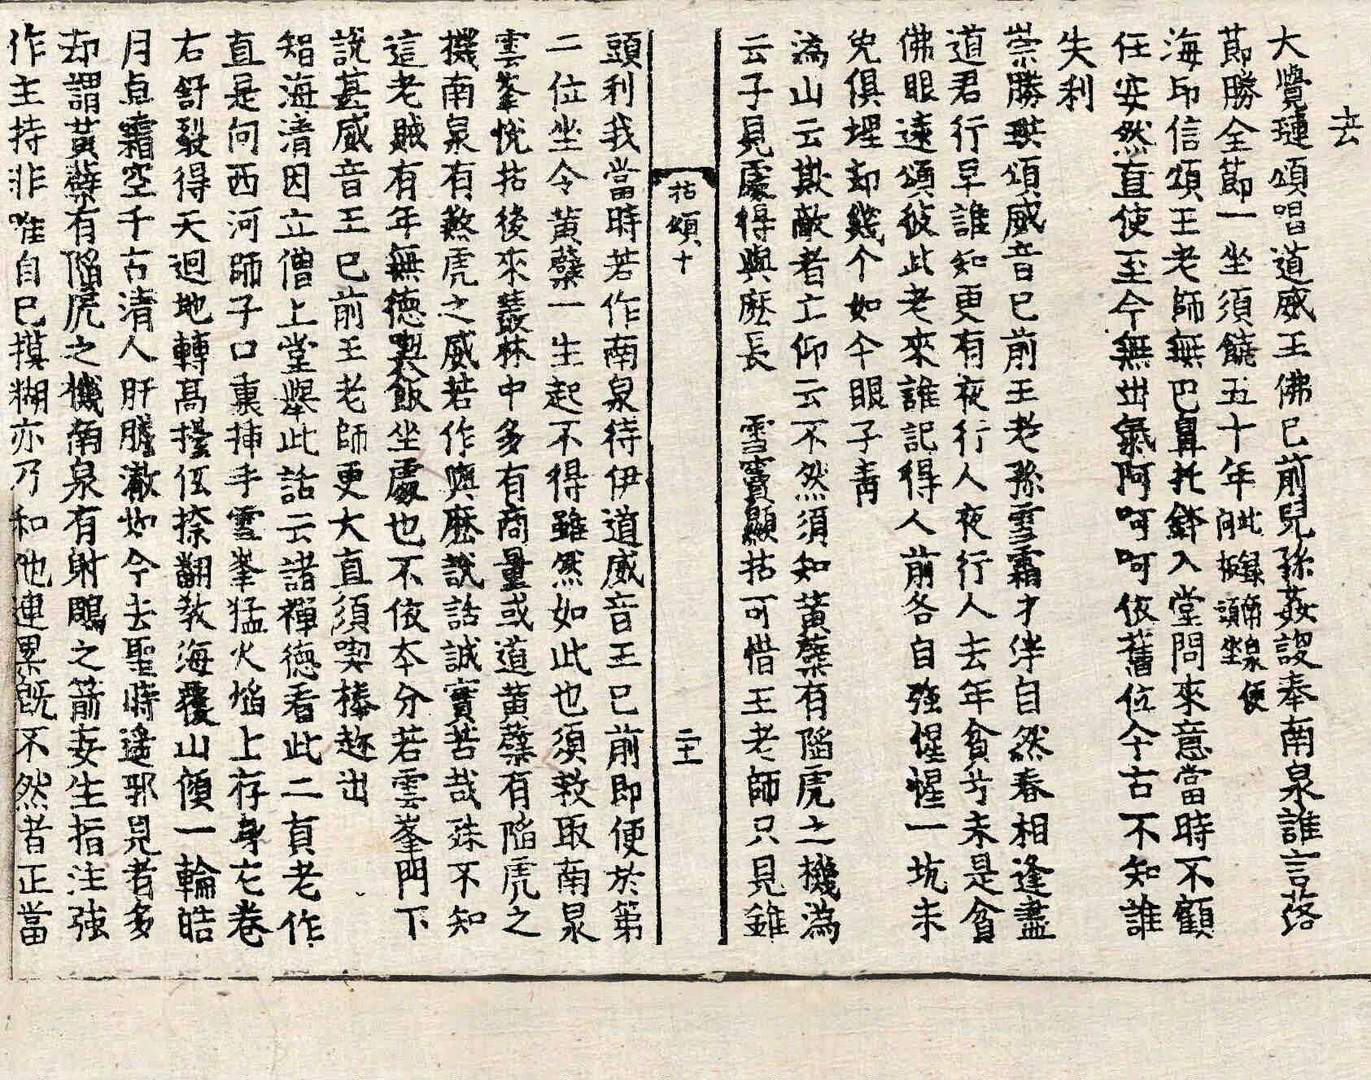 去
大覺璉頌唱道威王佛已前兒孫妄設奉南泉誰言落
節勝全節一坐須饒五十年此錄南泉便向板頭坐
海印信頌王老師無巴鼻托鉢入堂問來意當時不顧
任安然直使至今無出氣阿呵呵依舊位今古不知誰
失利
崇勝珙頌威音已前王老孫雪霜才伴自然春相逢盡
道君行早誰知更有夜行人夜行人去年貧兮未是貧
佛眼遠頌彼此老來誰記得人前各自強惺惺一坑未
免俱埋却幾个如今眼子靑
溈山云欺敵者亡仰云不然須知黃蘗有陷虎之機溈
云子見處得與麽長　雪竇顯拈可惜王老師只見錐
拈頌十
二十
頭利我當時若作南泉待伊道威音王已前即便於第
二位坐令黃蘗一生起不得雖然如此也須救取南泉
雲峯悅拈後來叢林中多有商量或道黃蘗有陷虎之
機南泉有煞虎之威若作與麽說話誠實苦哉殊不知
這老賊有年無德喫飯坐處也不依本分若雲峯門下
說甚威音王已前王老師更大直須喫棒趂出
智海淸因立僧上堂擧此話云諸禪德看此二員老作
直是向西河師子口裏揷手雲峯猛火焰上存身它卷
右舒裂得天迴地轉高擡低捺翻敎海覆山傾一輪皓
月点霜空千古淸人肝膽澈如今去聖時遙邪見者多
却謂黃蘗有陷虎之機南泉有射鵰之箭妄生指注强
作主持非唯自已摸糊亦乃和他連累旣不然者正當